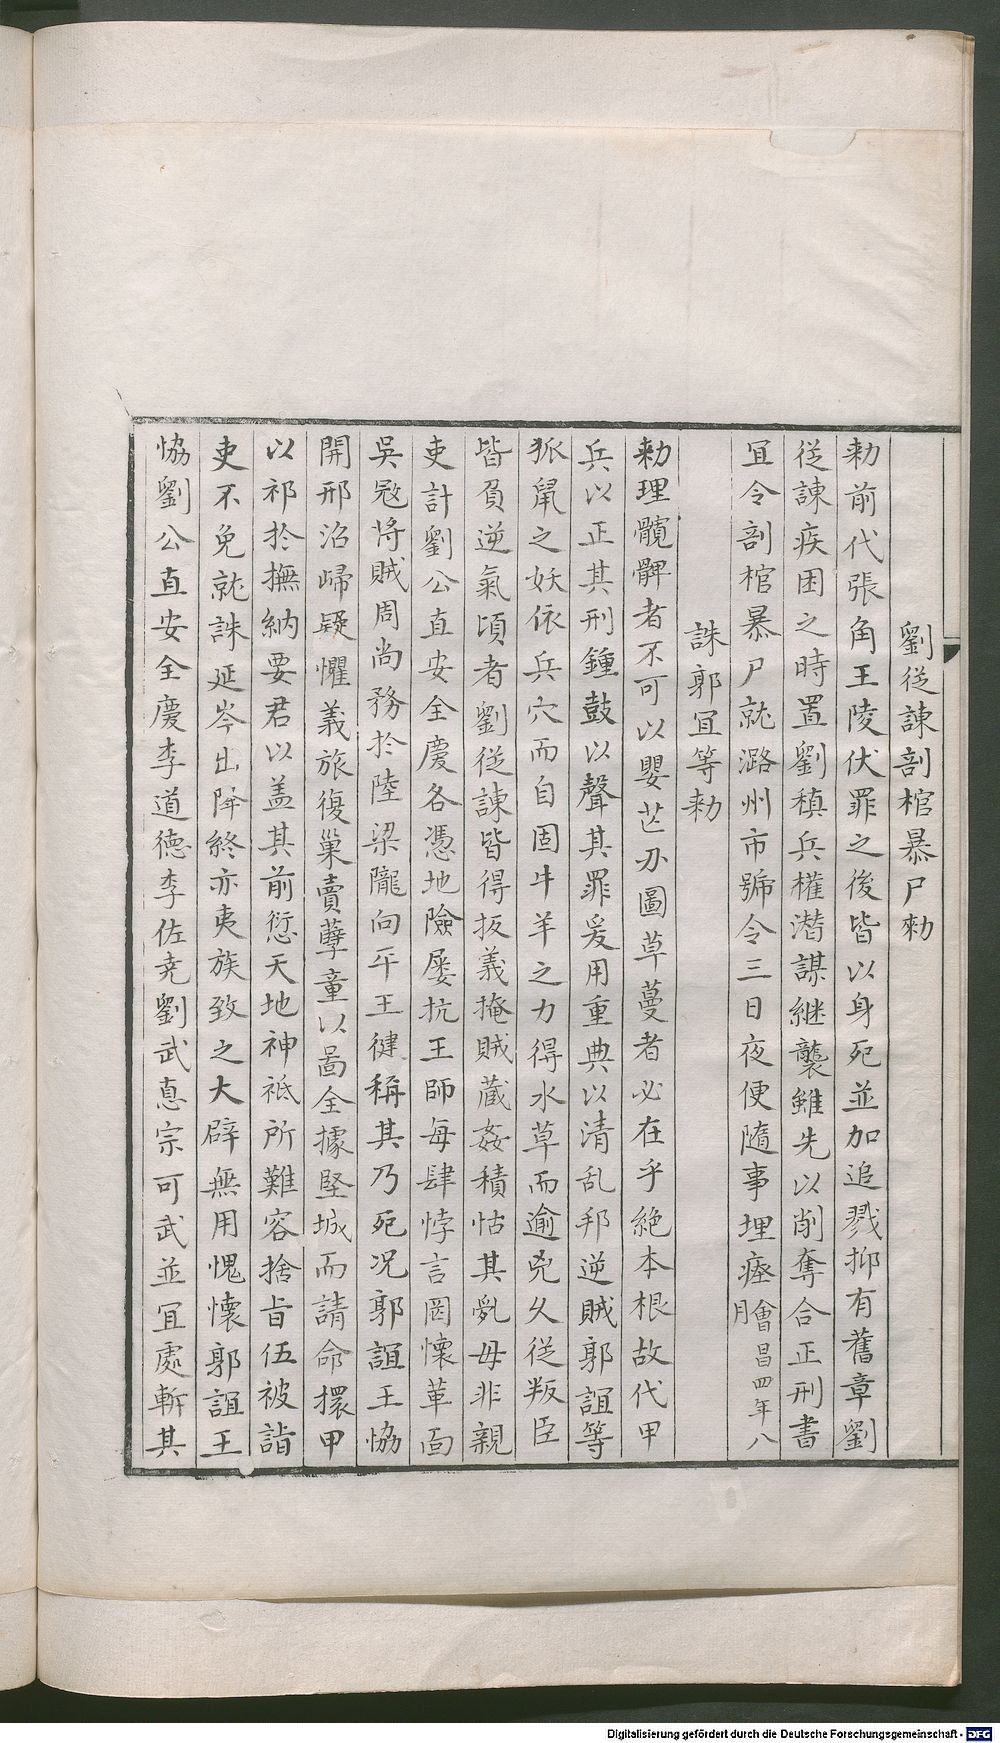 劉從諫剖棺暴尸勑
勑前代張角王陵伏罪之後皆以身死並加追戮抑有舊章劉
從諫疾困之時置劉稹兵權潛謀継襲雖先以削奪合正刑書
宜令剖棺暴尸就潞州市號令三日夜便隨事埋瘞會昌四年八月
誅郭冝等勑
勑理髖髀者不可以嬰芒刃圖草蔓者必在乎絶本根故代甲
兵以正其刑鍾鼓以聲其罪爰用重典以清乱邦逆賊郭誼等
狐鼠之妖依兵穴而自固牛羊之力得水草而逾兇久從叛臣
皆負逆氣頃者劉從諫皆得扳義掩賊蔵姦積怙其乱毋非親
吏計劉公直安全慶各憑地險屡抗王師每肆悖言罔懷革面
吳冦將賊周尚務於陸梁隴向平王健稱其乃死况郭誼王協
開邢洺歸疑懼義旅復巢賣孽童以啚全據堅城而請命擐甲
以祁於撫納要君以盖其前愆天地神祇所難容捨㫖伍被詣
吏不免就誅延岑出降終亦夷族致之大辟無用愧懷郭誼王
協劉公直安全慶李道德李佐尭劉武悳宗可武並宜處斬其
Digitalisierung gefördert durch die Deutsche Forschungsgemeinschaft - DFG